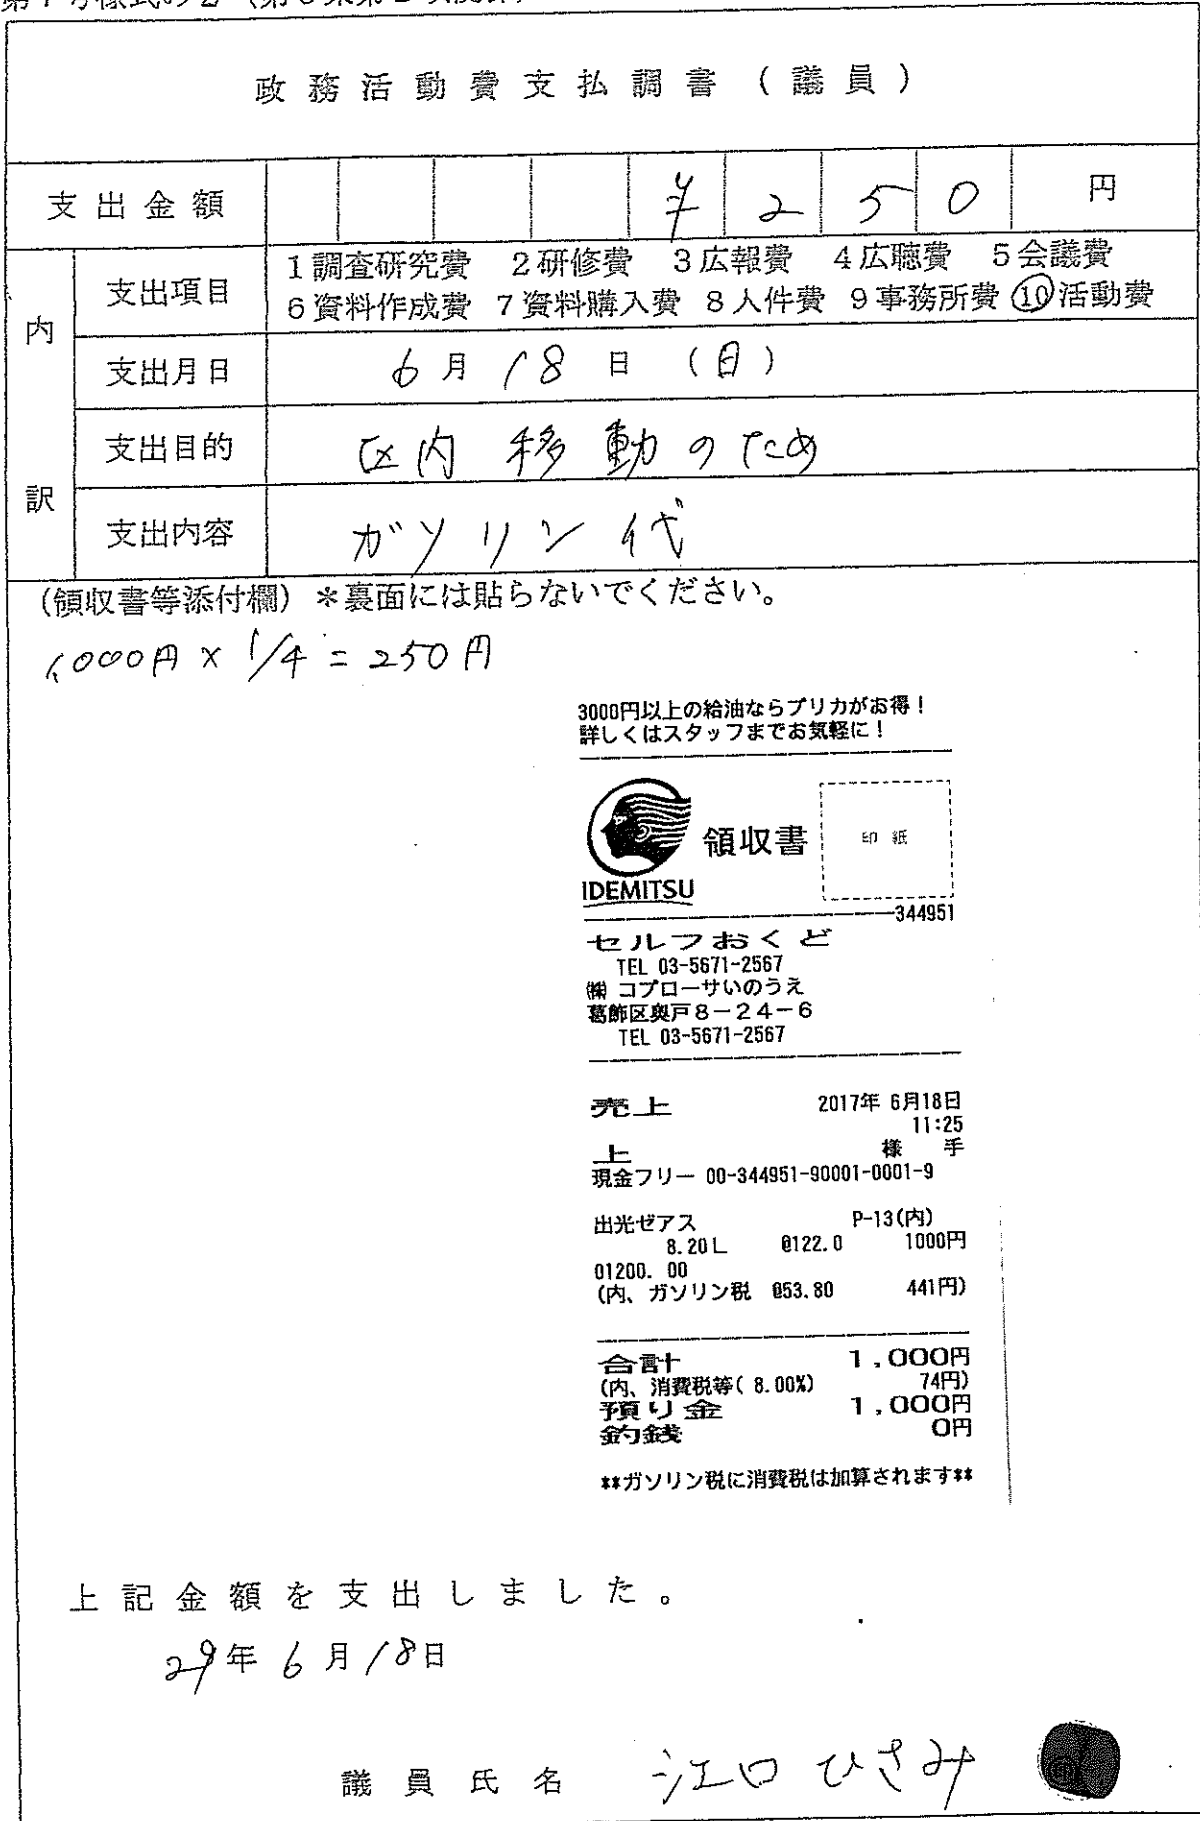 政務活動費支払調書（議員）
支出金額 ¥250円
内訳
支出項目 1調査研究費 2研修費 3広報費 4広聴費 5会議費
6資料作成費 7資料購入費 8人件費 9事務所費 ⑩活動費
支出月日 6月18日（日）
支出目的 区内移動のため
支出内容 ガソリン代
（領収書等添付欄）＊裏面には貼らないでください。
1,000円×1/4=250円
3000円以上の給油ならプリカがお得！
詳しくはスタッフまでお気軽に！
領収書 印紙
IDEMITSU
344951
セルフおくど
TEL 03-5671-2567
㈱コプローサいのうえ
葛飾区奥戸8-24-6
TEL 03-5671-2567
売上 2017年 6月18日
11:25
上 様 手
現金フリー 00-344951-90001-0001-9
出光ゼアス P-13(内)
8.20L @122.0 1000円
01200. 00
(内、ガソリン税 @53.80 441円)
合計 1,000円
(内、消費税等( 8.00%) 74円)
預り金 1,000円
釣銭 0円
**ガソリン税に消費税は加算されます**
上記金額を支出しました。
29年6月18日
議員氏名 江口ひさみ